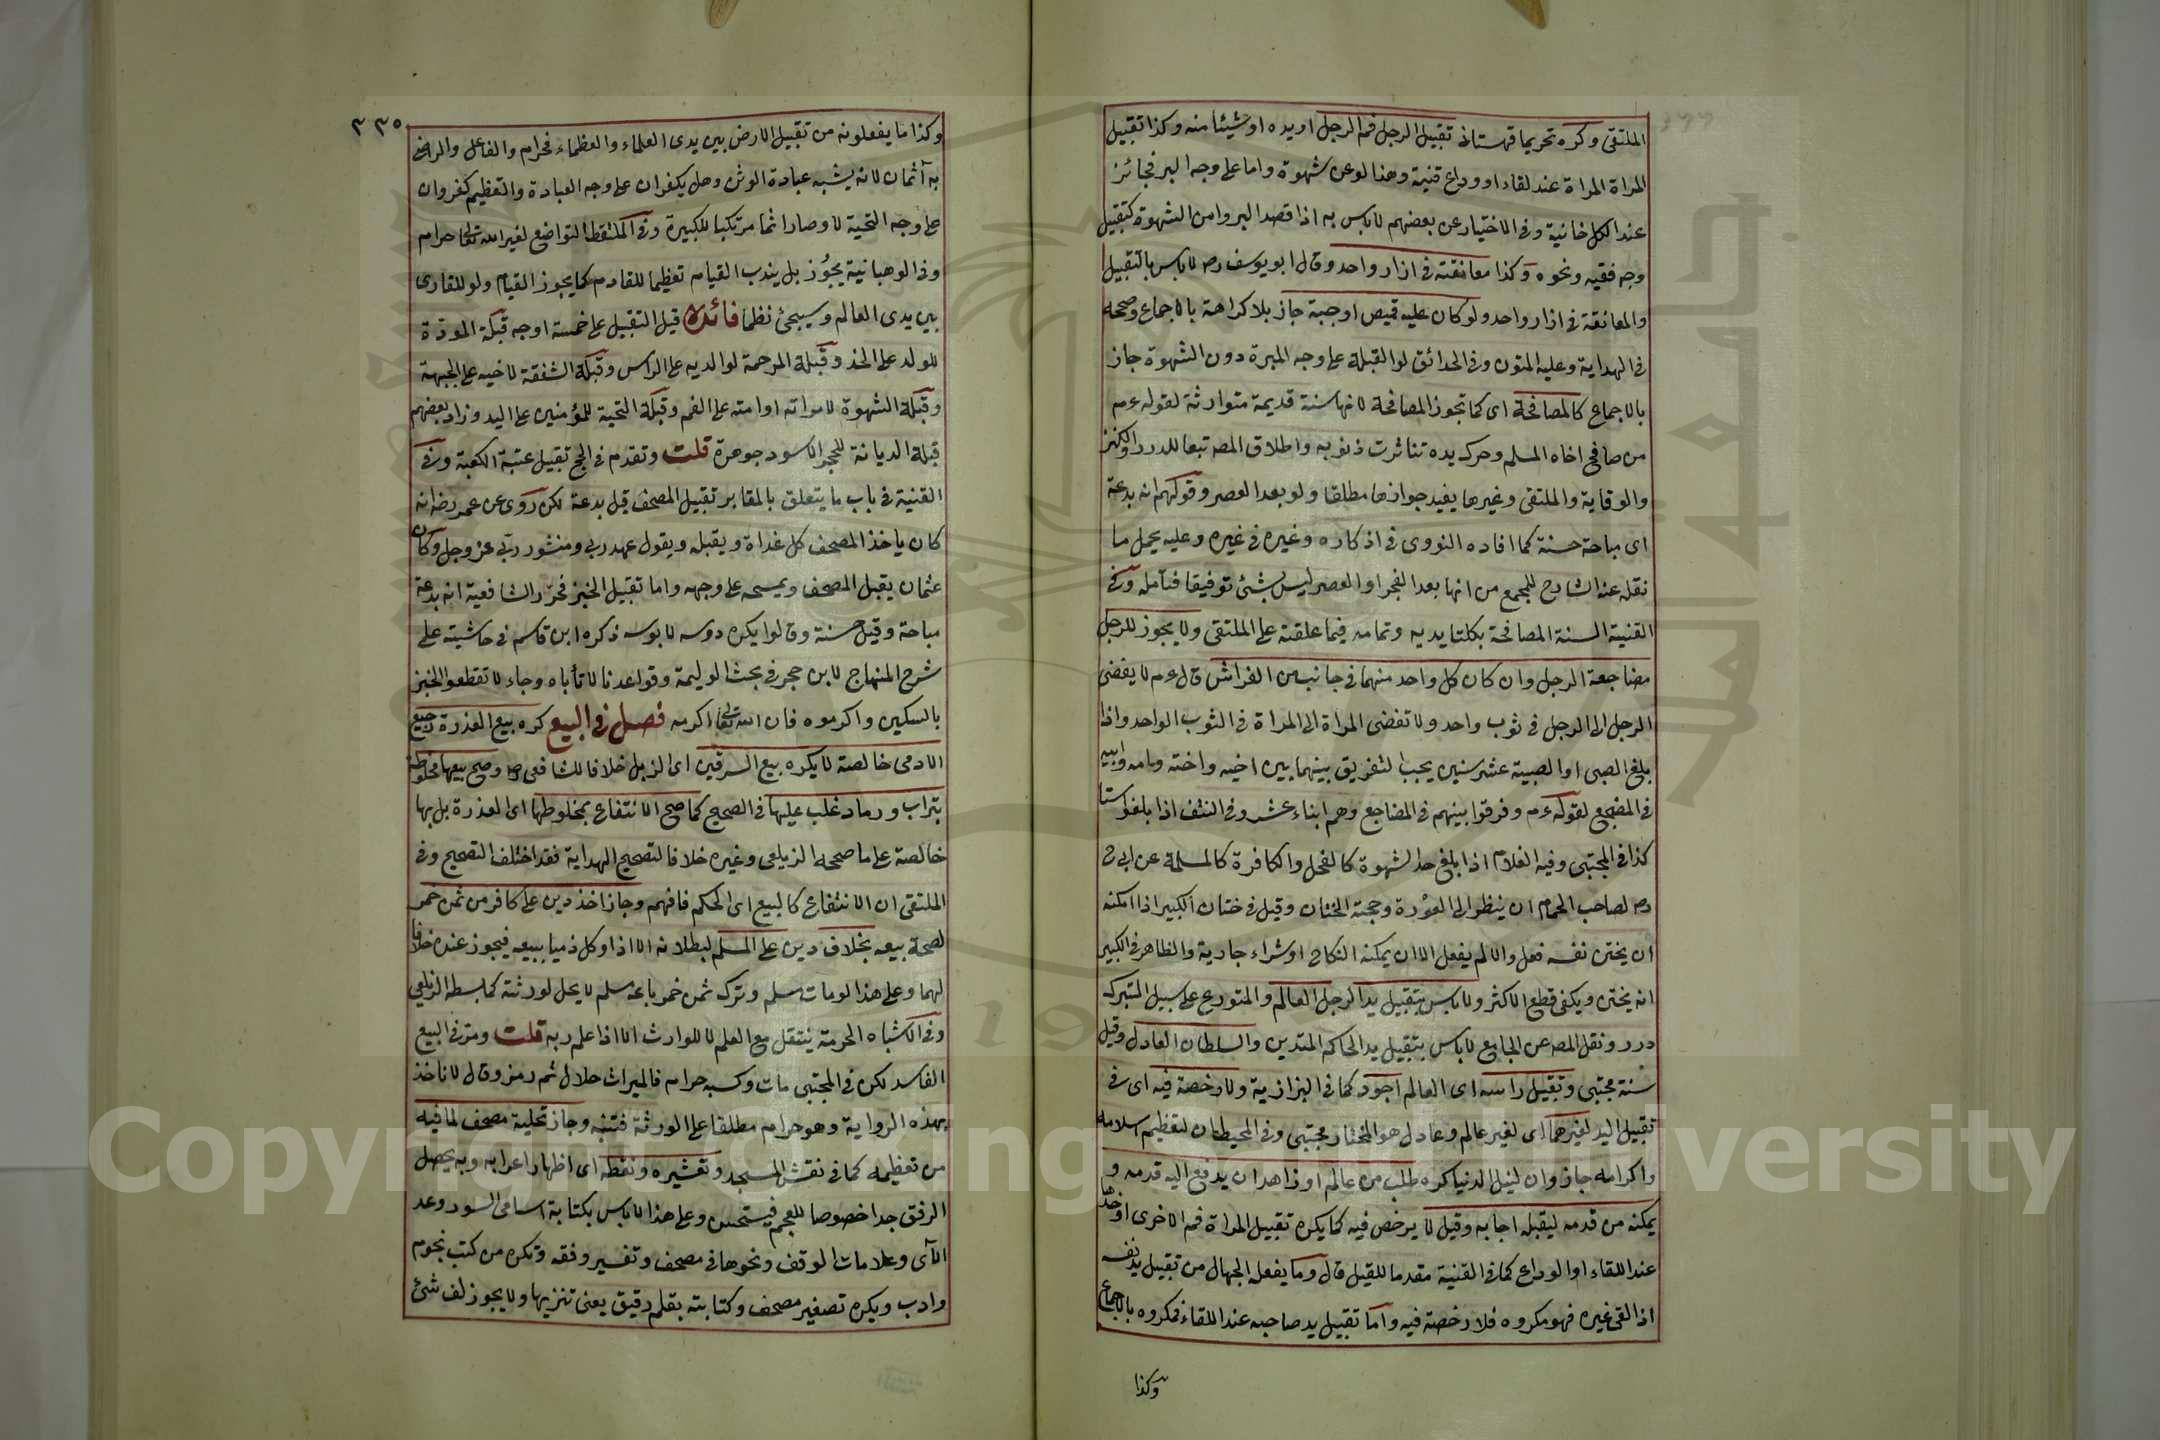 الملتقى وكره تحريما قهستانى تقبيل الرجل فم الرجل او يده او شيئا منه وكذا تقبيل
المراة المراة عند لقاء او وداع قنية وهذا لو عن شهوة واما على وجه البر فجائز
عند الكل خانية وفى الاختيار عن بعضهم لا باس به اذا قصد البر وامن الشهوة كتقبيل
وجه فقيه ونحوه وكذا معانقته فى ازار واحد وقال ابو يوسف رح لا باس بالتقبيل
والمعانقة فى ازار واحد ولو كان عليه قميص او جبة جاز بلا كراهة بالاجماع وصححه
فى الهداية وعليه المتون وفى الحدائق لو القبلة على وجه المبرة دون الشهوة جاز
بالاجماع كالمصافحة اى كما تجوز المصافحة لانها سنة قديمة متوارثة لقوله عم
من صافح اخاه المسلم وحرك يده تناثرت ذنوبه واطلاق المص تبعا للدرر والكنز
والوقاية والملتقى وغيرها يفيد جوازها مطلقا ولو بعد العصر وقولهم انه بدعة
اى مباحة حسنة كما افاده النووى فى اذكاره وغيره فى غيره وعليه يحمل ما
نقله عنه الشارح للمجمع من انها بعد الفجر او العصر ليس بشئ توفيقا فتأمله وفى
القنية السنة المصافحة بكلتا يديه وتمامه فيما علقته على الملتقى ولا يجوز للرجل
مضاجعة الرجل وان كان كل واحد منهما فى جانب من الفراش قال عم لا يفضى
الرجل الى الرجل فى ثوب واحد ولا تفضى المراة الى المراة فى الثوب الواحد واذا
بلغ الصبى او الصبية عشر سنين يجب التفريق بينهما بين اخيه واخته وامه وابيه
فى المضجع لقوله عم وفرقوا بينهم فى المضاجع وهم ابناء عشر وفى النتف اذا بلغوا ستا
كذا فى المجتبى وفيه الغلام اذا بلغ حد الشهوة كالفحل والكافرة كالمسلمة عن ابى ح
رح لصاحب الحمام ان ينظر الى العورة وحجته الختان وقيل فى ختان الكبير اذا امكنه
ان يختن نفسه فعل والا لم يفعل الا ان يمكنه النكاح او شراء جارية والظاهر فى الكبير
انه يختن ويكفى قطع الاكثر ولا باس بتقبيل يد الرجل العالم والمتورع على سبيل التبرك
درر ونقل المص عن الجامع لا باس بتقبيل يد الحاكم المتدين والسلطان العادل وقيل
سنة مجتبى وتقبيل راسه اى العالم اجود كما فى البزازية ولا رخصة فيه اى فى
تقبيل اليد لغيرهما اى لغير عالم وعادل هو المختار مجتبى وفى المحيط ان لتعظيم اسلامه
واكرامه جاز وان لنيل الدنيا كره طلب من عالم او زاهد ان يدفع اليه قدمه و
يمكنه من قدمه ليقبله اجابه وقيل لا يرخص فيه كما يكره تقبيل المراة فم الاخرى او خدها
عند اللقاء او الوداع كما فى القنية مقدما للقيل قال وما يفعله الجهال من تقبيل يد نفسه
اذا لقى غيره فهو مكروه فلا رخصة فيه واما تقبيل يد صاحبه عند اللقاء فمكروه بالاجماع
وكذا
٣٣٥
وكذا ما يفعلونه من تقبيل الارض بين يدى العلماء والعظماء فحرام والفاعل والراضى
به آثمان لانه يشبه عبادة الوثن وهل يكفران على وجه العبادة والتعظيم كفر وان
على وجه التحية لا وصار اثما مرتكبا للكبيرة وفى الملتقط التواضع لغير الله تعالى حرام
وفى الوهبانية يجوز بل يندب القيام تعظيما للقادم كما يجوز القيام ولو للقارى
بين يدى العالم وسيجئ نظما فائدة قيل التقبيل على خمسة اوجه قبلة المودة
للولد على الخد وقبلة المرحمة لوالديه على الراس وقبلة الشفقة لاخيه على الجبهة
وقبلة الشهوة لامراته او امته على الفم وقبلة التحية للمؤمنين على اليد وزاد بعضهم
قبلة الديانة للحجر الاسود جوهرة قلت وتقدم فى الحج تقبيل عتبة الكعبة وفى
القنية فى باب ما يتعلق بالمقابر تقبيل المصحف قيل بدعة لكن روى عن عمر رضه انه
كان ياخذ المصحف كل غداة ويقبله ويقول عهد ربى ومنشور ربى عز وجل وكان
عثمان يقبل المصحف ويمسحه على وجهه واما تقبيل الخبز فحرر الشافعية انه بدعة
مباحة وقيل حسنة وقالوا يكره دوسه لا بوسه ذكره ابن قاسم فى حاشيته على
شرح المنهاج لابن حجر فى بحث الوليمة وقواعدنا لا تأباه وجاء لا تقطعوا الخبز
بالسكين واكرموه فان الله تعالى اكرمه فصل فى البيع كره بيع العذرة رجيع
الادمى خالصة لا يكره بيع السرقين اى الزبل خلافا للشافعى وصح بيعها مخلوطة
بتراب ورماد غلب عليها فى الصحيح كما صح الانتفاع بمخلوطها اى العذرة بل بها
خالصة على ما صححه الزيلعى وغيره خلافا لتصحيح الهداية فقد اختلف التصحيح وفى
الملتقى ان الانتفاع كالبيع اى الحكم فافهم وجاز اخذ دين على كافر من ثمن خمر
لصحة بيعه بخلاف دين على المسلم لبطلانه الا اذا وكل ذميا ببيعه فيجوز عنده خلافا
لهما وعلى هذا لو مات مسلم وترك ثمن خمر باعه مسلم لا يحل لورثته كما بسطه الزيلعى
وفى الاشباه الحرمة ينتقل مع العلم لا للوارث الا اذا علم ربه قلت ومر فى البيع
الفاسد لكن فى المجتبى مات وكسبه حرام فالميراث حلال ثم رمز وقال لا ناخذ
بهذه الرواية وهو حرام مطلقا على الورثة فتنبه وجاز تحلية مصحف لما فيه
من تعظيمه كما فى نقش المسجد وتعشيره ونقطه اى اظهار اعرابه وبه يحصل
الرفق جدا خصوصا للعجم فيستحسن وعلى هذا لا باس بكتابة اسامى السور وعد
الآى وعلامات الوقف ونحوها فى مصحف وتفسير وفقه وتكره من كتب نجوم
وادب ويكره تصغير مصحف وكتابته بقلم دقيق يعنى تنزيها ولا يجوز لف شئ
Copyright © King Saud University